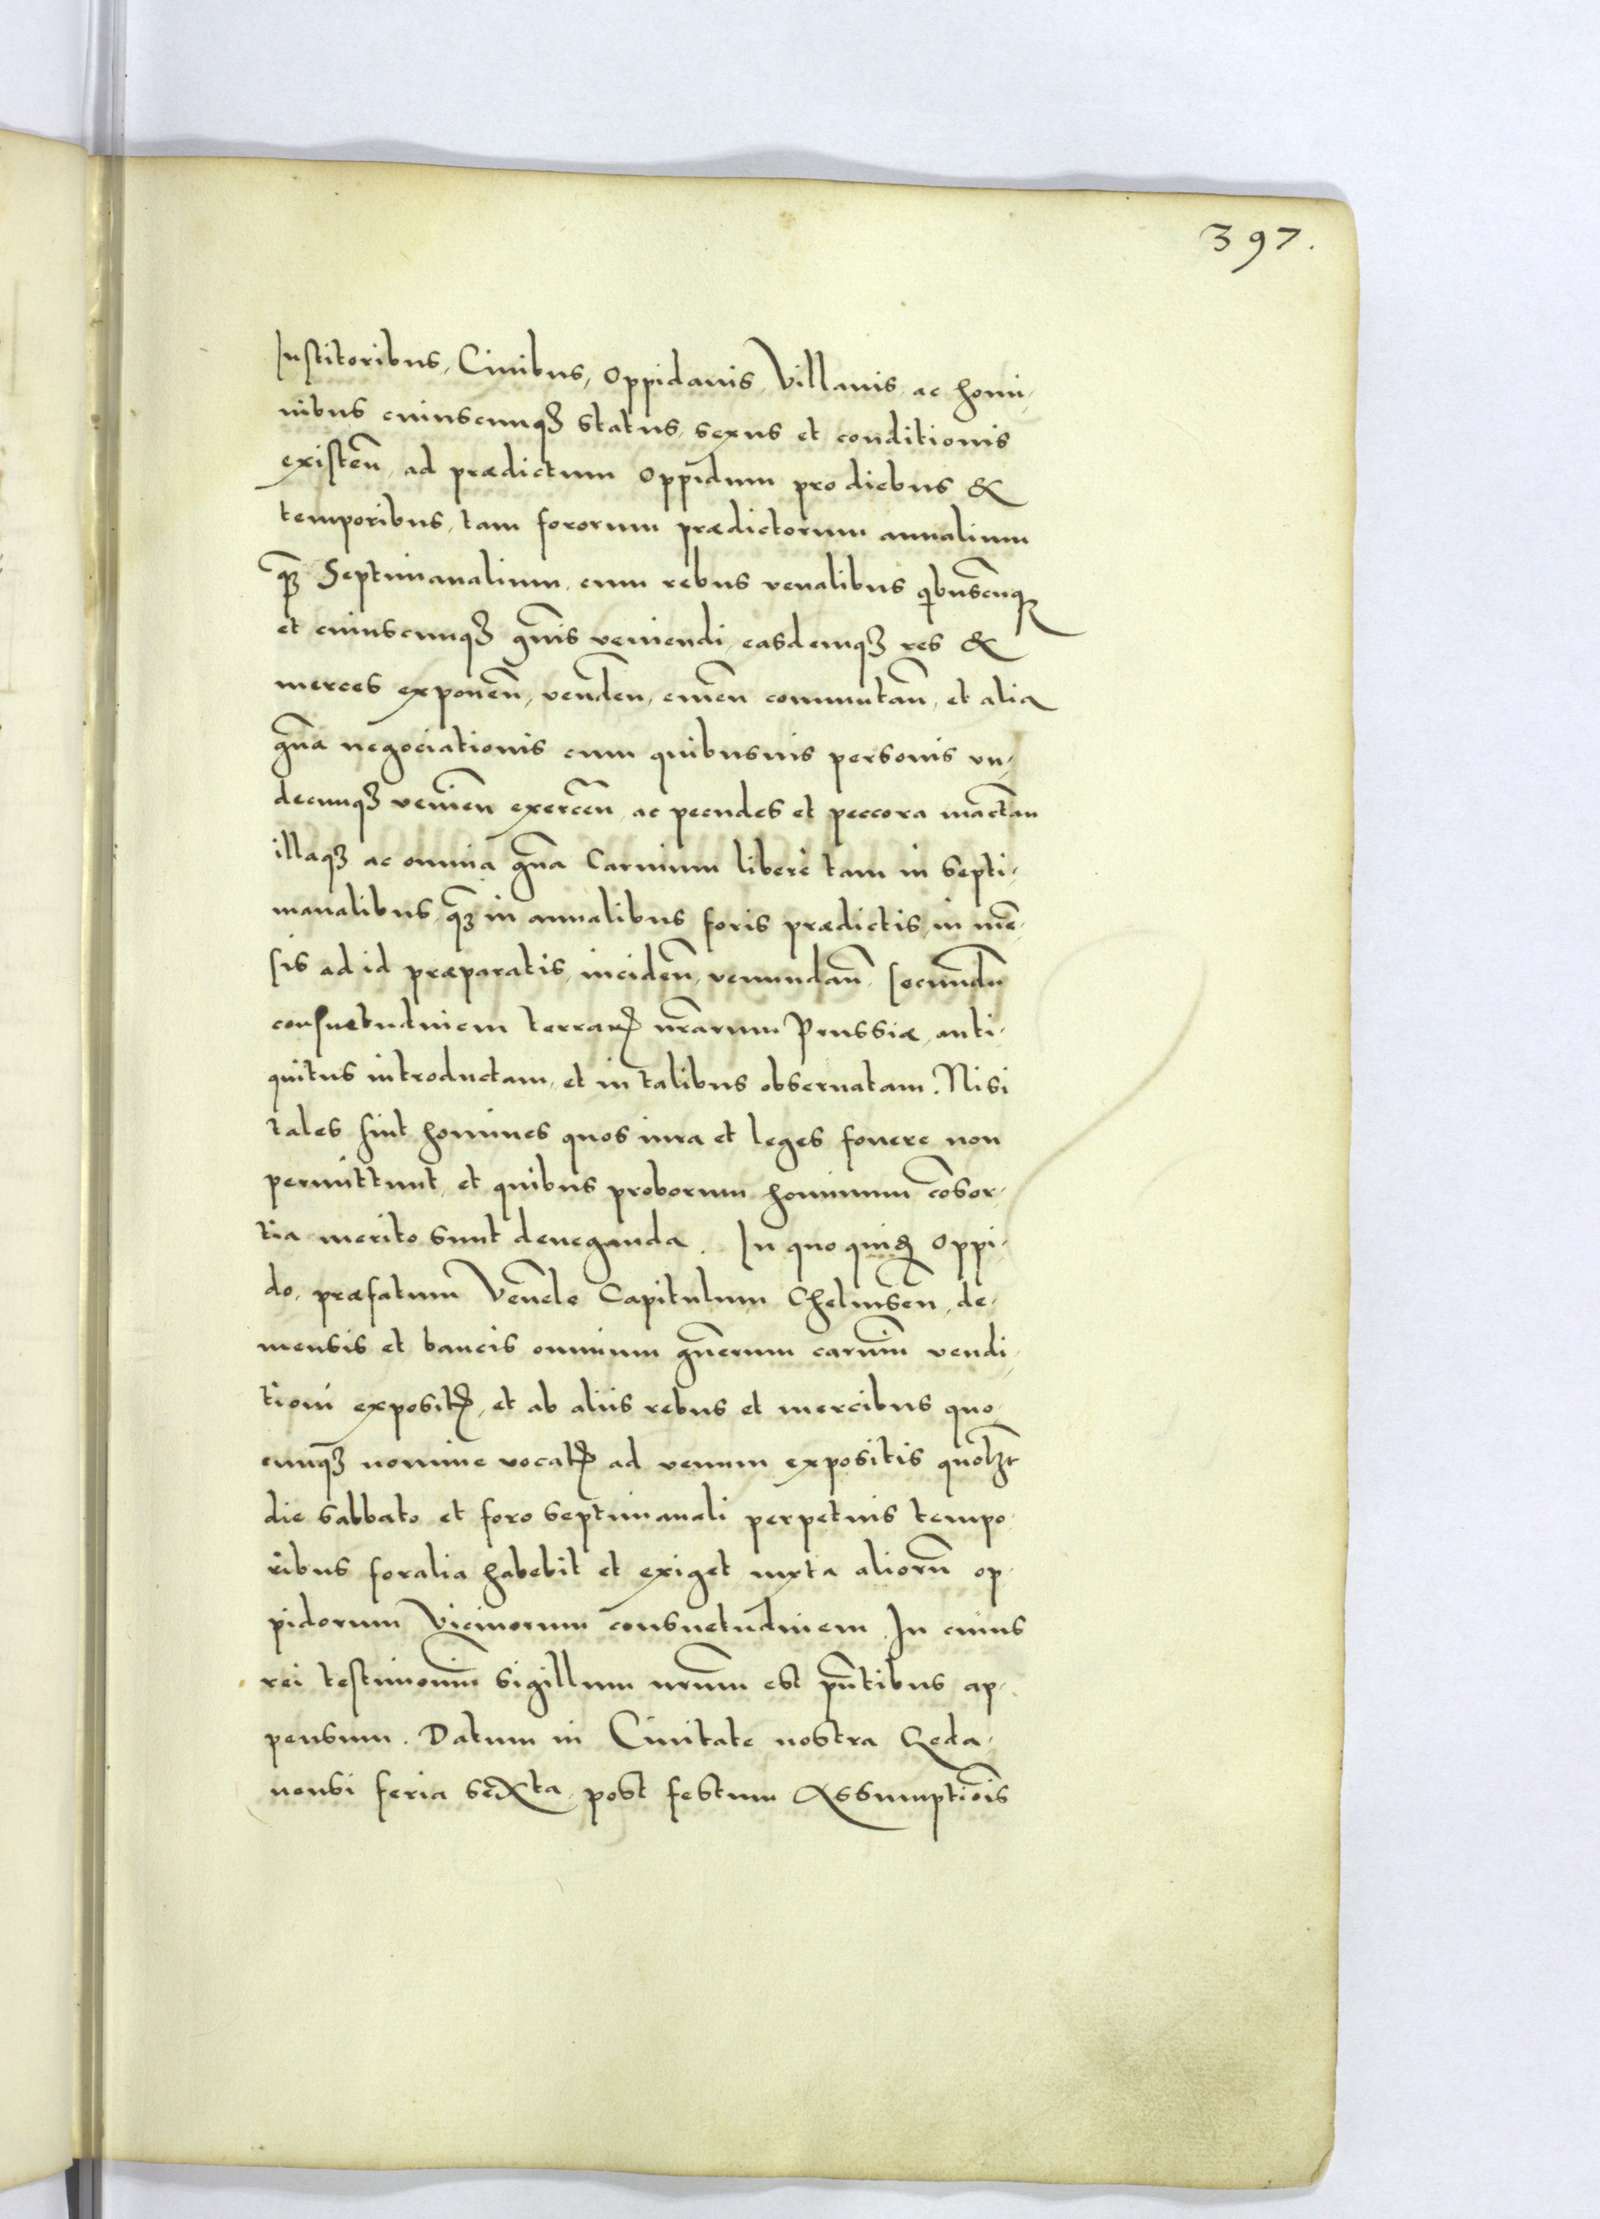 397.
Institoribus, Ciuibus, Oppidanis, Villanis, ac homi,
nibus cuiuscunqꝫ status, sexus et conditionis
existeñ, ad prædictum Oppidum pro diebus &
temporibus, tam fororum prædictorum annalium
q̃ꝫ Septimanalium, cum rebus venalibus qibuscũqꝫ
et cuiuscunqꝫ gñis veniendi, easdemqꝫ res &
merces exponeñ, vendeñ, emeñ commutañ, et alia
gña negociationis cum quibusuis personis vn,
decunqꝫ venieñ exerceñ, ac pecudes et peccora mactañ
illaqꝫ ac omnia gña Carnium liberè tam in septi,
manalibus, q̃ꝫ in annalibus foris prædictis, in mẽ,
sis ad id præparatis, incideñ, venundañ, secundũ
consuetudinem terrarꝝ nr̃arum Prussiæ, anti,
quitus introductam, et in talibus obseruatam. Nisi
tales sint homines quos iura et leges fouere non
permittunt, et quibus proborum hominum cõsor,
tia merito sunt deneganda. In quo quidẽ Oppi,
do, præfatum Veñele Capitulum Chelmseñ, de,
mensis et bancis omnium gñerum carniũ vendi,
tioni expositꝭ, et ab aliis rebus et mercibus quo,
cunqꝫ nomine vocatꝭ ad venum expositis quolꝫt
die sabbato et foro septimanali perpetuis tempo,
ribus foralia habebit et exiget iuxta aliorũ op,
pidorum vicinorum consuetudinem. In cuius
rei testimoniũ sigillum nr̃um est pñtibus ap,
pensum. Datum in Ciuitate nostra Geda,
nensi feria sexta, post festum Assumptiõis